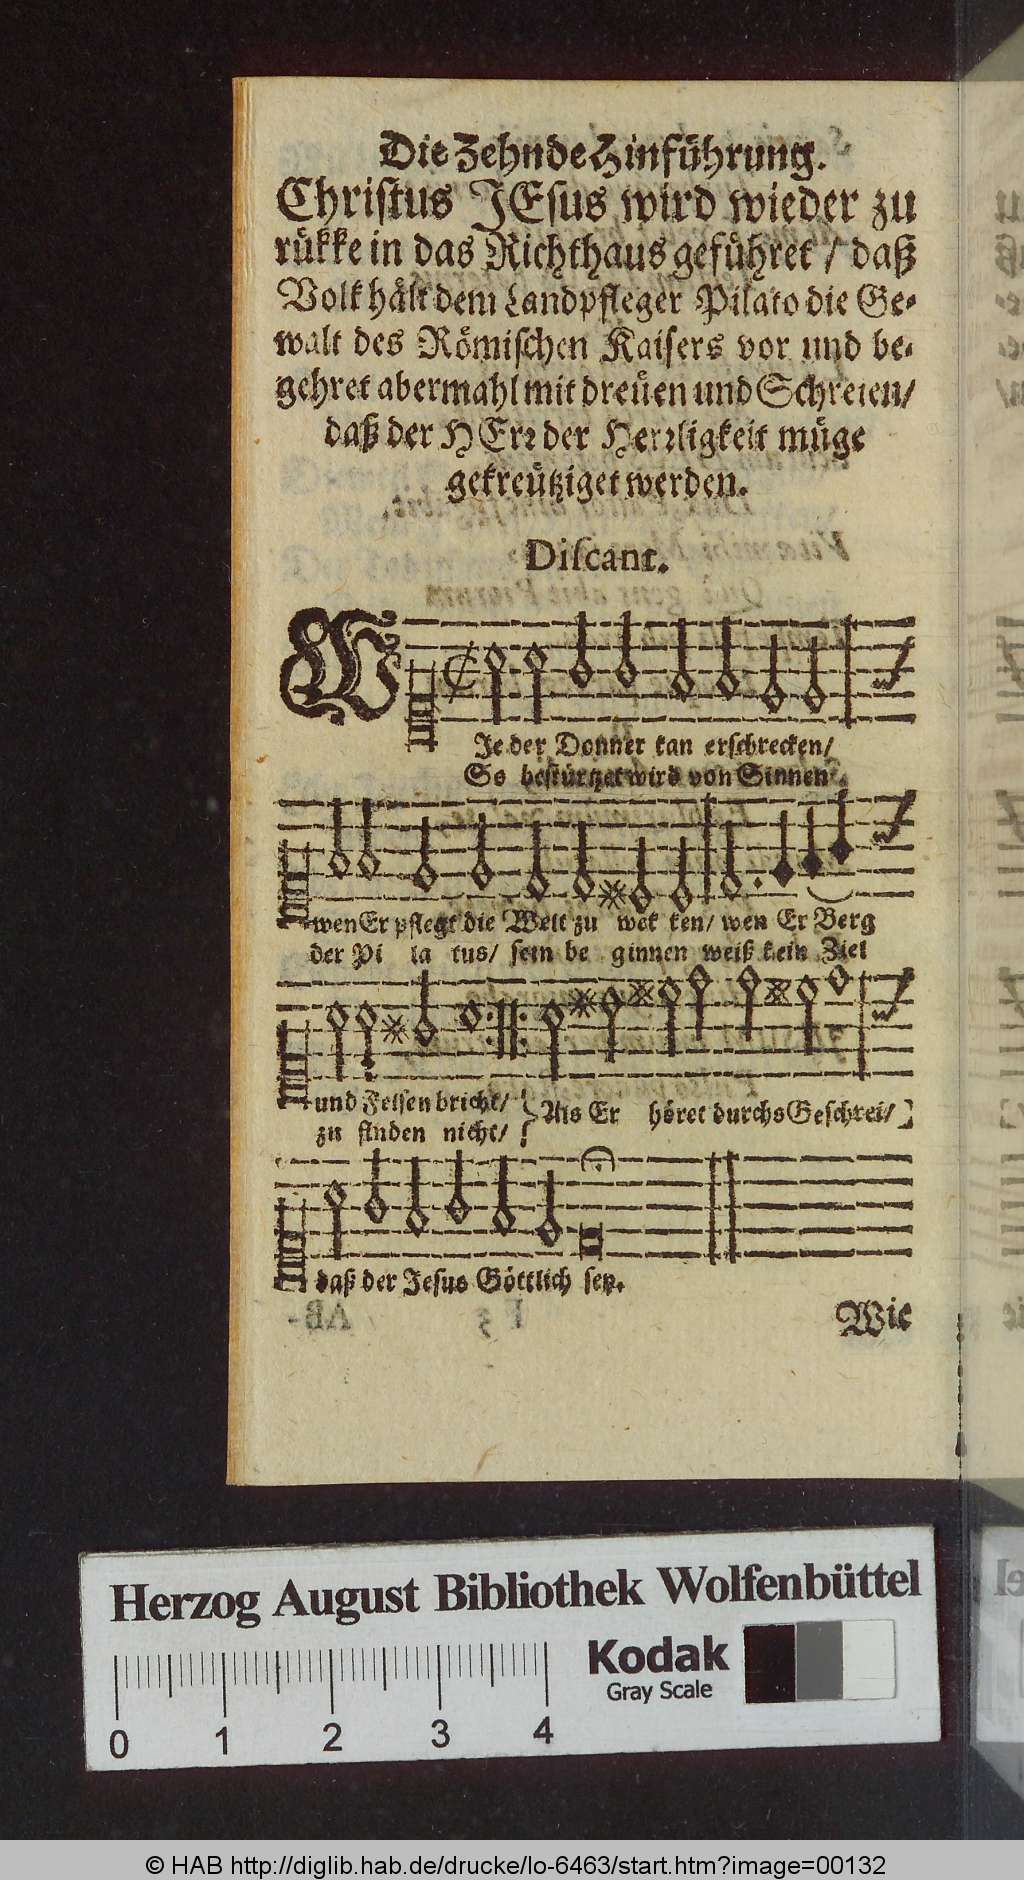 Die Zehnde Hinführung.
Christus JEsus wird wieder zu
rükke in das Richthaus geführet / daß
Volk hält dem Landpfleger Pilato die Ge-
walt des Römischen Kaisers vor und be-
gehret abermahl mit dreüen und Schreien/
daß der HErr der Herrligkeit müge
gekreützigt werden.
Discant.
WJe der Donner kan erschrecken/
So bestürtzet wird von Sinnen
wen Er pflegt die Welt zu wek ken/ wen Er Berg
der Pi la tus/ sein be ginnen weiß kein Ziel
und Felsen bricht/
zu finden nicht/
Als Er höret durchs Geschrei/
daß der Jesus Göttlich sey.
Wie
Herzog August Bibliothek Wolfenbüttel
Kodak
Gray Scale
0 1 2 3 4
© HAB http://diglib.hab.de/drucke/lo-6463/start.htm?image=00132